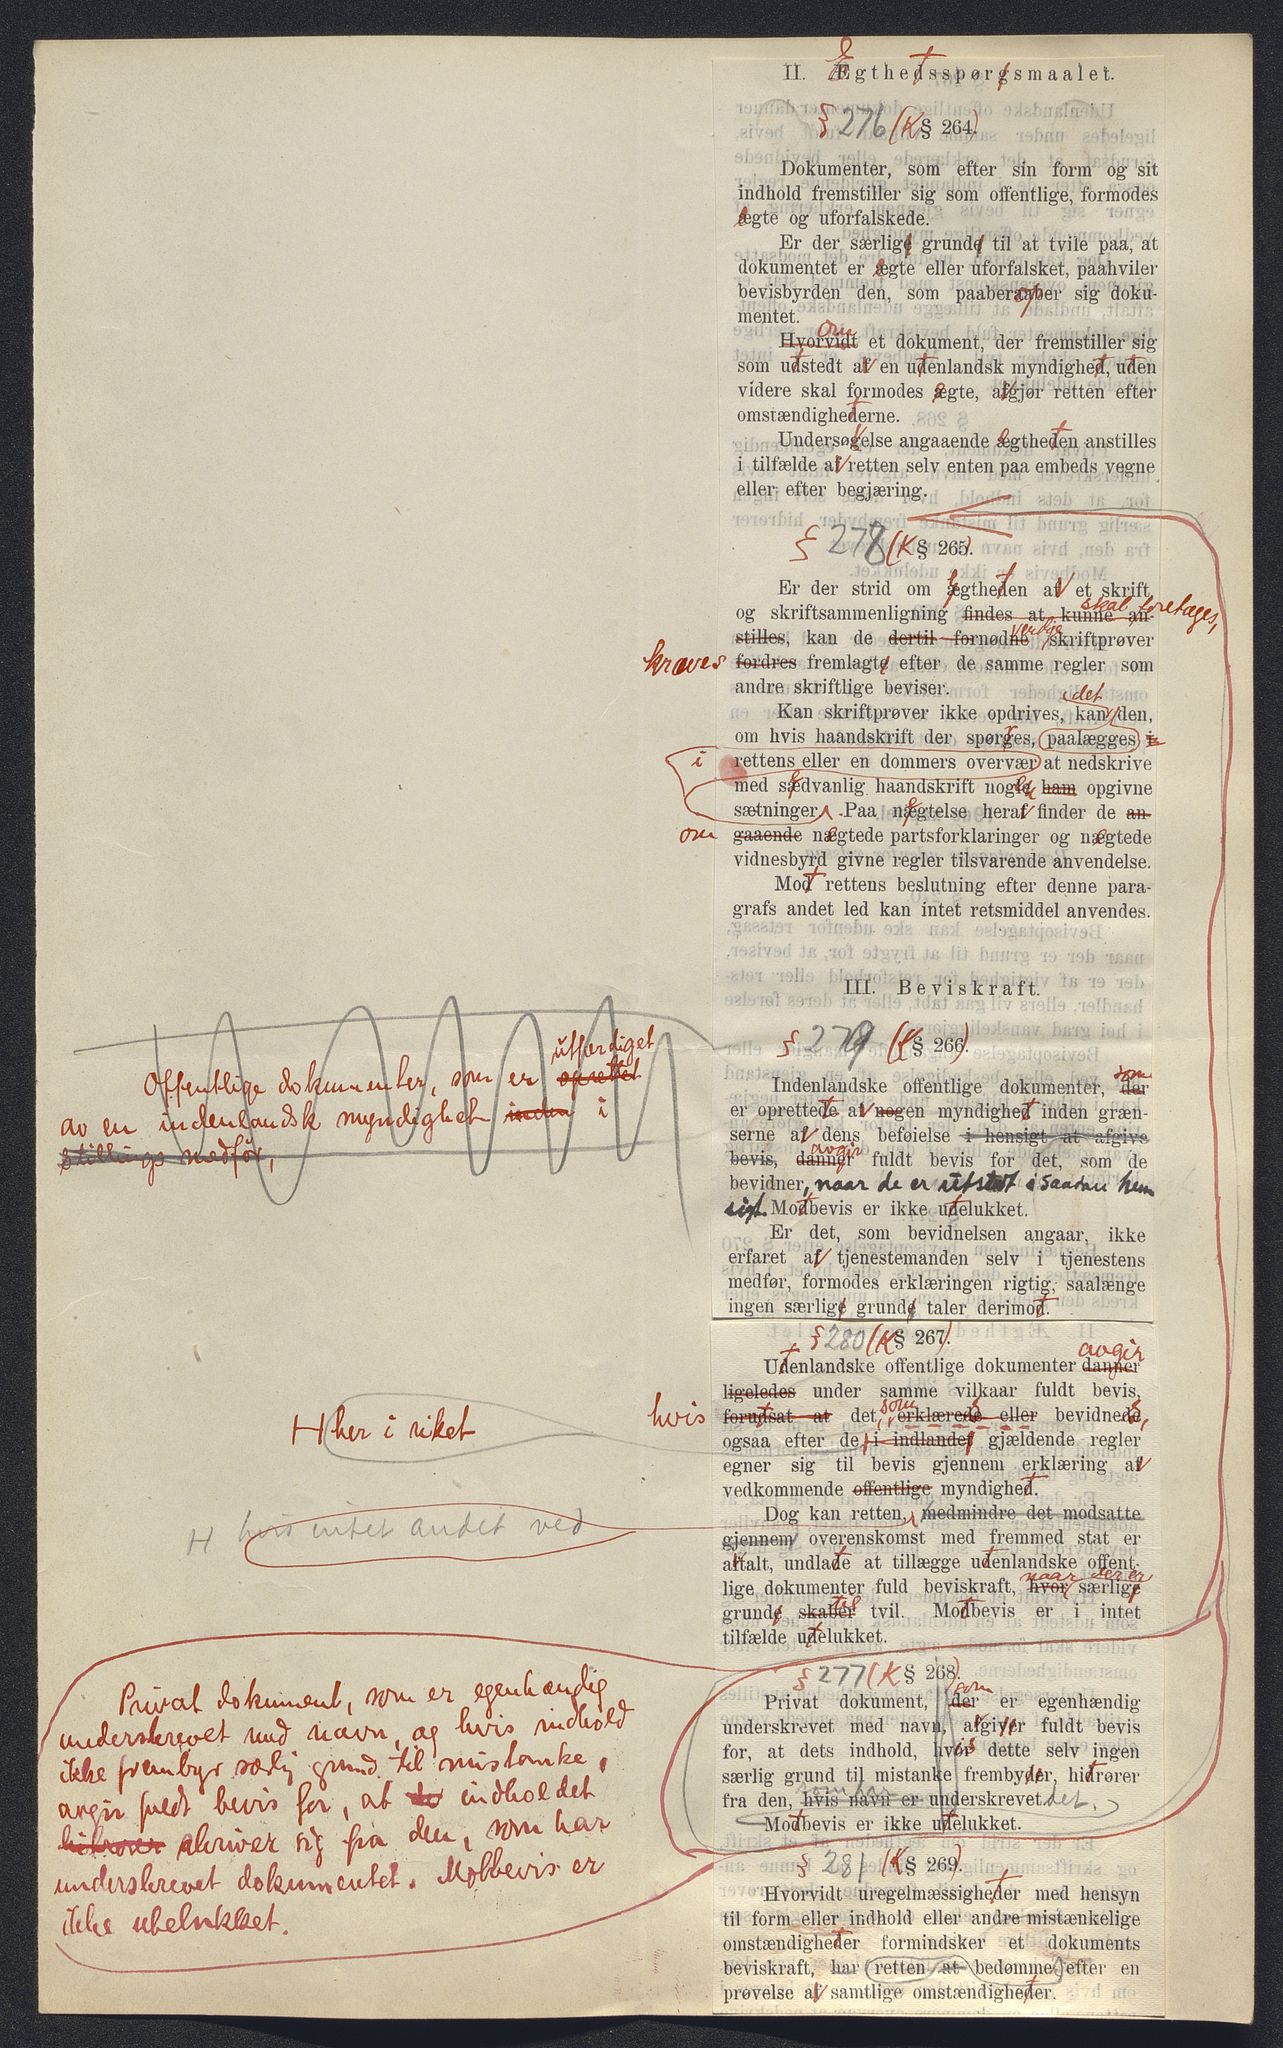 II. Egthedsspørgsmaalet.
§ 276 (K § 264).
Dokumenter, som efter sin form og sit
indhold fremstiller sig som offentlige, formodes
ægte og uforfalskede.
Er der særlige grunde til at tvile paa, at
dokumentet er ægte eller uforfalsket, paahviler
bevisbyrden den, som paaberaaber sig doku-
mentet.
om
Hvorvidt et dokument, der fremstiller sig
som udstedt af en udenlandsk myndighed, uden
videre skal formodes ægte, afgjør retten efter
omstændighederne.
Undersøgelse angaaende ægtheden anstilles
i tilfælde af retten selv enten paa embeds vegne
eller efter begjæring.
§ 278 (K § 265).
Er der strid om ægtheden af et skrift,
skal foretages,
og skriftsammenligning findes at kunne an-
stilles, kan de dertil fornødne skriftprøver
kræves
fordres fremlagte efter de samme regler som
andre skriftlige beviser.
det
Kan skriftprøver ikke opdrives, kan den,
om hvis haandskrift der spørges, paalægges i
i
rettens eller en dommers overvær at nedskrive
med sædvanlig haandskrift nogle ham opgivne
sætninger. Paa nægtelse heraf finder de an-
om
gaaende nægtede partsforklaringer og nægtede
vidnesbyrd givne regler tilsvarende anvendelse.
Mod rettens beslutning efter denne para-
grafs andet led kan intet retsmiddel anvendes.
III. Beviskraft.
§ 279 (K § 266)
utfærdiget
Offentlige dokumenter, som er oprettet
av en indenlandsk myndighet inden i
stillings medfør,
som
Indenlandske offentlige dokumenter, der
er oprettede af nogen myndighed inden græn-
serne af dens beføielse i hensigt at afgive
avgir
bevis, danner fuldt bevis for det, som de
bevidner, naar de er utstedt i saadan hen
sigt. Modbevis er ikke udelukket.
Er det, som bevidnelsen angaar, ikke
erfaret af tjenestemanden selv i tjenestens
medfør, formodes erklæringen rigtig, saalænge
ingen særlige grunde taler derimod.
§ 280 (K § 267.)
avgir
Udenlandske offentlige dokumenter danner
ligeledes under samme vilkaar fuldt bevis,
hvis
som
forudsat at det erklærede eller bevidnede
H her i riket
ogsaa efter de i indlandet gjældende regler
egner sig til bevis gjennem erklæring af
vedkommende offentlige myndighed.
H hvis intet andet ved
Dog kan retten, medmindre det modsatte
gjennem overenskomst med fremmed stat er
aftalt, undlade at tillægge udenlandske offent-
naar der er
lige dokumenter fuld beviskraft, hvor særlige
til
grunde skaber tvil. Modbevis er i intet
tilfælde udelukket.
§ 277 (K § 268).
som
Privat dokument, der er egenhændig
underskrevet med navn, afgiver fuldt bevis
for, at dets indhold, hvor dette selv ingen
særlig grund til mistanke frembyder, hidrører
som har
fra den, hvis navn er underskrevet det.
Modbevis er ikke udelukket.
Privat dokument, som er egenhændig
underskrevet med navn, og hvis indhold
ikke frembyr særlig grund til mistanke,
avgir fuldt bevis for, at indholdet
hidrører skriver sig fra den, som har
underskrevet dokumentet. Motbevis er
ikke utelukket.
§ 281 (K § 269).
Hvorvidt uregelmæssigheder med hensyn
til form eller indhold eller andre mistænkelige
omstændigheder formindsker et dokuments
beviskraft, har retten at bedømme efter en
prøvelse af samtlige omstændigheder.